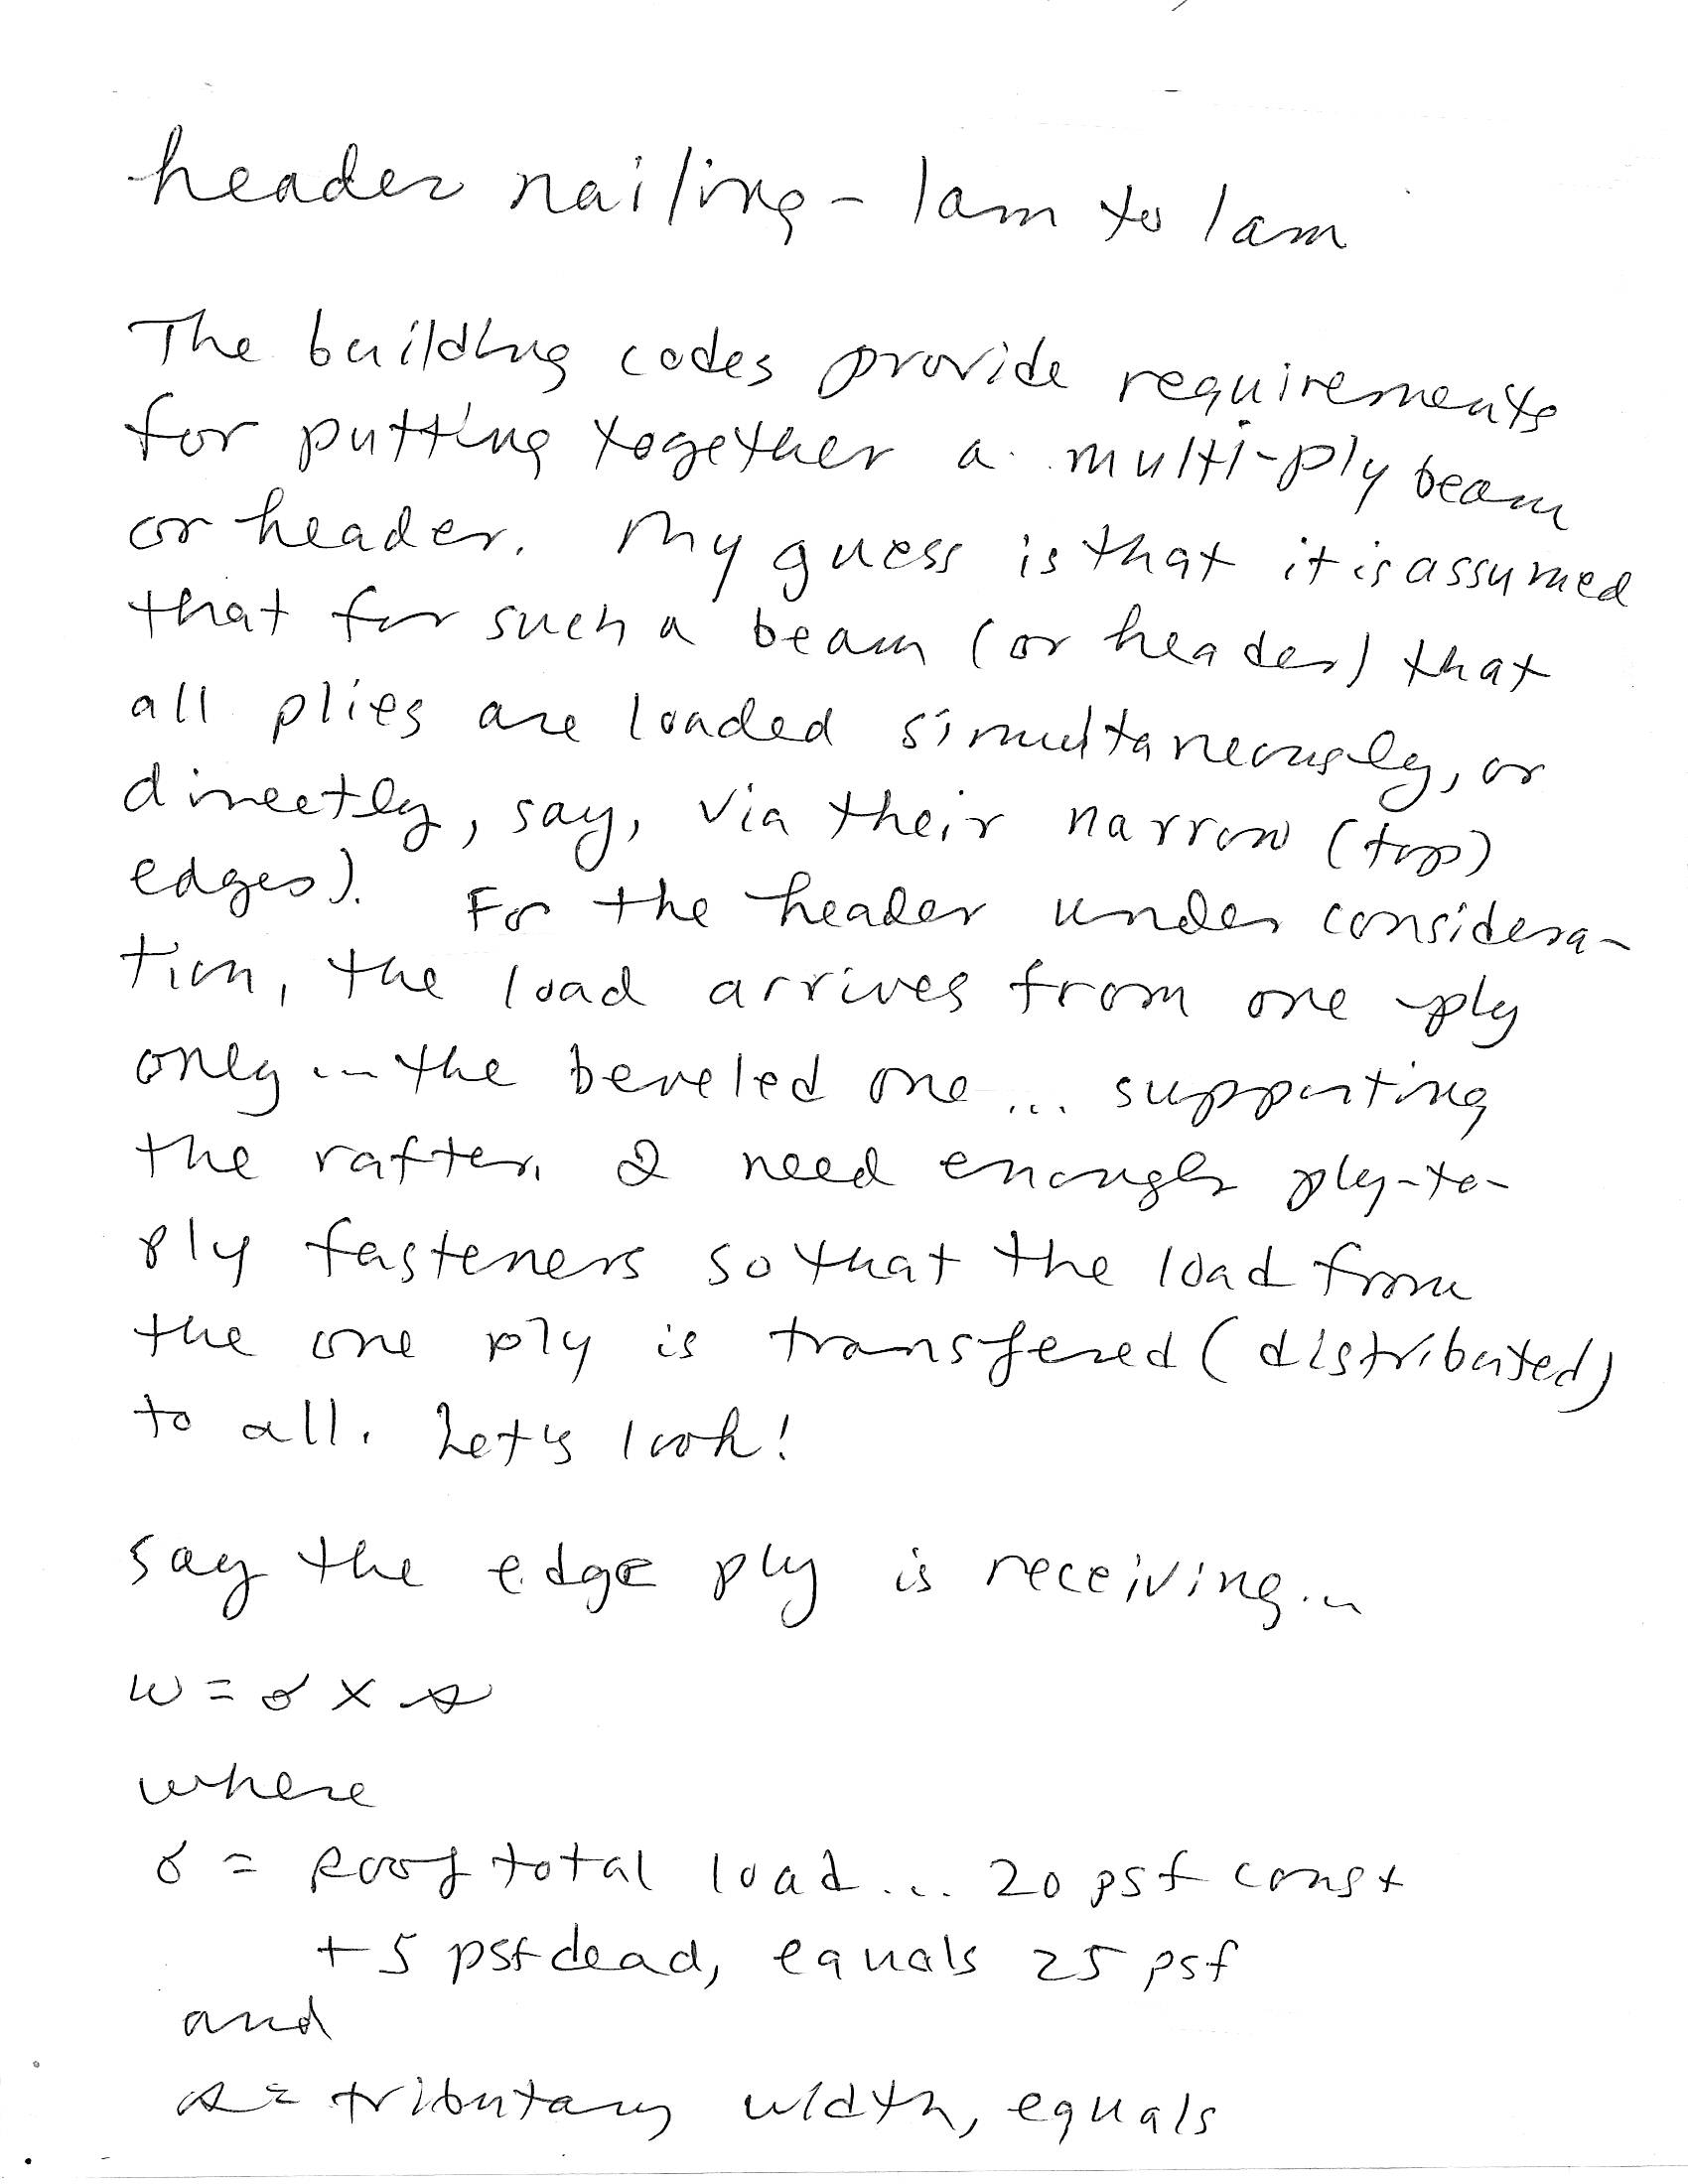 header nailing - lam to lam
The building codes provide requirements
for putting together a multi-ply beam
or header. My guess is that it is assumed
that for such a beam (or header) that
all plies are loaded simultaneously, or
directly, say, via their narrow (top)
edges). For the header under considera-
tion, the load arrives from one ply
only ... the beveled one ... supporting
the rafter. I need enough ply-to-
ply fasteners so that the load from
the one ply is transfered (distributed)
to all. Let's look!
say the edge ply is receiving ...
w = σ x s
where
σ = roof total load ... 20 psf const
+ 5 psf dead, equals 25 psf
and
s = tributary width, equals